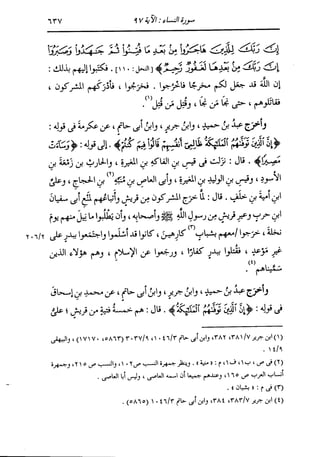 سورة النساء : الآية ٩٧ ٦٣٧
إن ربك للذين هاجروا من بعد ما فتنوا ثم جهدوا وصبروا
إن ربك من بعدها لغفور رحيم﴾ [النحل: ١١٠]. فكتبوا إليهم بذلك :
إن الله قد جعل لكم مخرجًا فاخرجوا . فخرجوا ، فأدركهم المشركون ،
فقاتلوهم ، حتى نجا من نجا ، وقتل من قتل(١).
وأخرج عبد بن حميد ، وابن جرير ، وابن أبي حاتم ، عن عكرمة في قوله :
﴿إن الذين توفاهم الملائكة ظالمي أنفسهم قالوا فيم كنتم﴾ . إلى قوله : ﴿وساءت
مصيرا﴾ . قال : نزلت في قيس بن الفاكه بن المغيرة ، والحارث بن زمعة بن
الأسود ، وقيس بن الوليد بن المغيرة ، وأبي العاص بن منبه(٢) بن الحجاج ، وعلي
ابن أمية بن خلف . قال : لما خرج المشركون من قريش وأتباعهم لمنع أبي سفيان
ابن حرب وعير قريش من رسول الله ﷺ وأصحابه ، وأن يطلبوا ما نيل منهم يوم
نخلة ، خرجوا معهم بشباب(٣) كارهين ، كانوا قد أسلموا واجتمعوا ببدر على ٢٠٦/٢
غير موعد ، فقتلوا ببدر كفارًا ، ورجعوا عن الإسلام ، وهم هؤلاء الذين
سميناهم(٤).
وأخرج عبد بن حميد ، وابن جرير ، وابن أبي حاتم ، عن محمد بن إسحاق
في قوله : ﴿إن الذين توفاهم الملائكة﴾ . قال : هم خمسة فتية من قريش ؛ علي
(١) ابن جرير ٣٨١/٧، ٣٨٢، وابن أبي حاتم ١٠٤٦/٣، ٣٠٣٧/٩ (٥٨٦٣، ١٧١٧٠)، والبيهقي
١٤/٩.
(٣) في م : « بشبان » .
(٤) ابن جرير ٣٨٣/٧، ٣٨٤، وابن أبي حاتم ١٠٤٦/٣ (٥٨٦٥).